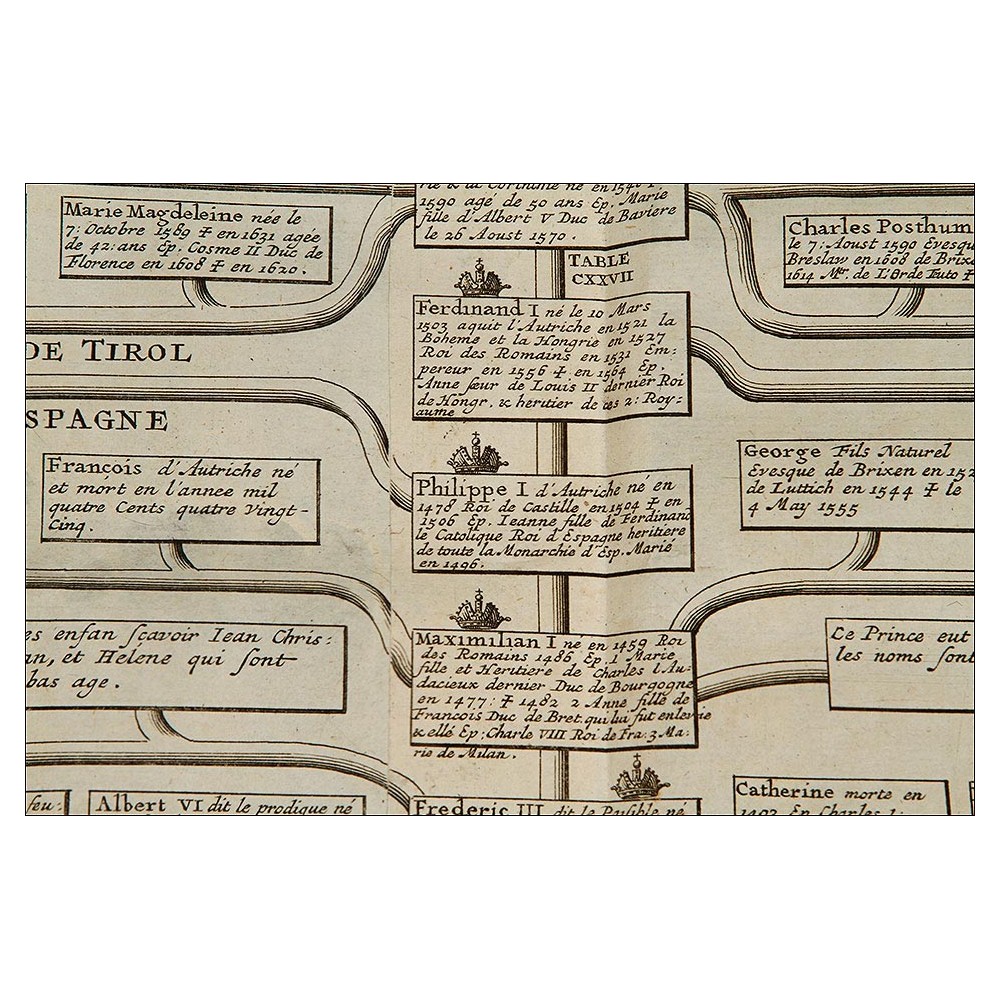 1590 agé de 50 ans Ep. Marie
fille d'Albert V Duc de Baviere
le 26 Aoust 1570.
Marie Magdeleine née le
7: Octobre 1589 ☩ en 1631 agée
de 42: ans Ep. Cosme II Duc de
Florence en 1608 ☩ en 1620.
Charles Posthum
le 7: Aoust 1590 Evesqu
Breslaw en 1608 de Brixe
1614 Mtr. de L'Ordre Teuto ☩
TABLE
CXXVII
Ferdinand I né le 10 Mars
1503 aquit l'Autriche en 1521 la
Boheme et la Hongrie en 1527
Roi des Romains en 1531 Em:
pereur en 1556 ☩ en 1564 Ep.
Anne sœur de Louis II dernier Roi
de Hongr. & heritier de ces 2: Roy-
aume
DE TIROL
SPAGNE
François d'Autriche né
et mort en l'annee mil
quatre Cents quatre Vingt-
Cinq.
Philippe I d'Autriche né en
1478 Roi de Castille en 1504 ☩ en
1506 Ep. Ieanne fille de Ferdinand
le Catolique Roi d'Espagne heritiere
de toute la Monarchie d'Esp. Marié
en 1496.
George Fils Naturel
Evesque de Brixen en 152
de Luttich en 1544 ☩ le
4 May 1555
es enfan sçavoir Iean Chris:
an, et Helene qui sont
bas age.
Maximilian I né en 1459 Roi
des Romains 1486 Ep. 1 Marie
fille et Heritiere de Charles l'Au-
dacieux dernier Duc de Bourgogne
en 1477: ☩ 1482 2 Anne fille de
Francois Duc de Bret. qui lui fut enlevie
& ellé Ep: Charle VIII Roi de Fra: 3 Ma-
rie de Milan.
Le Prince eut
les noms sont
feu:
Albert VI dit le prodique né
Frederic III dit le Paisible né
Catherine morte en
1493 Ep Charles I: